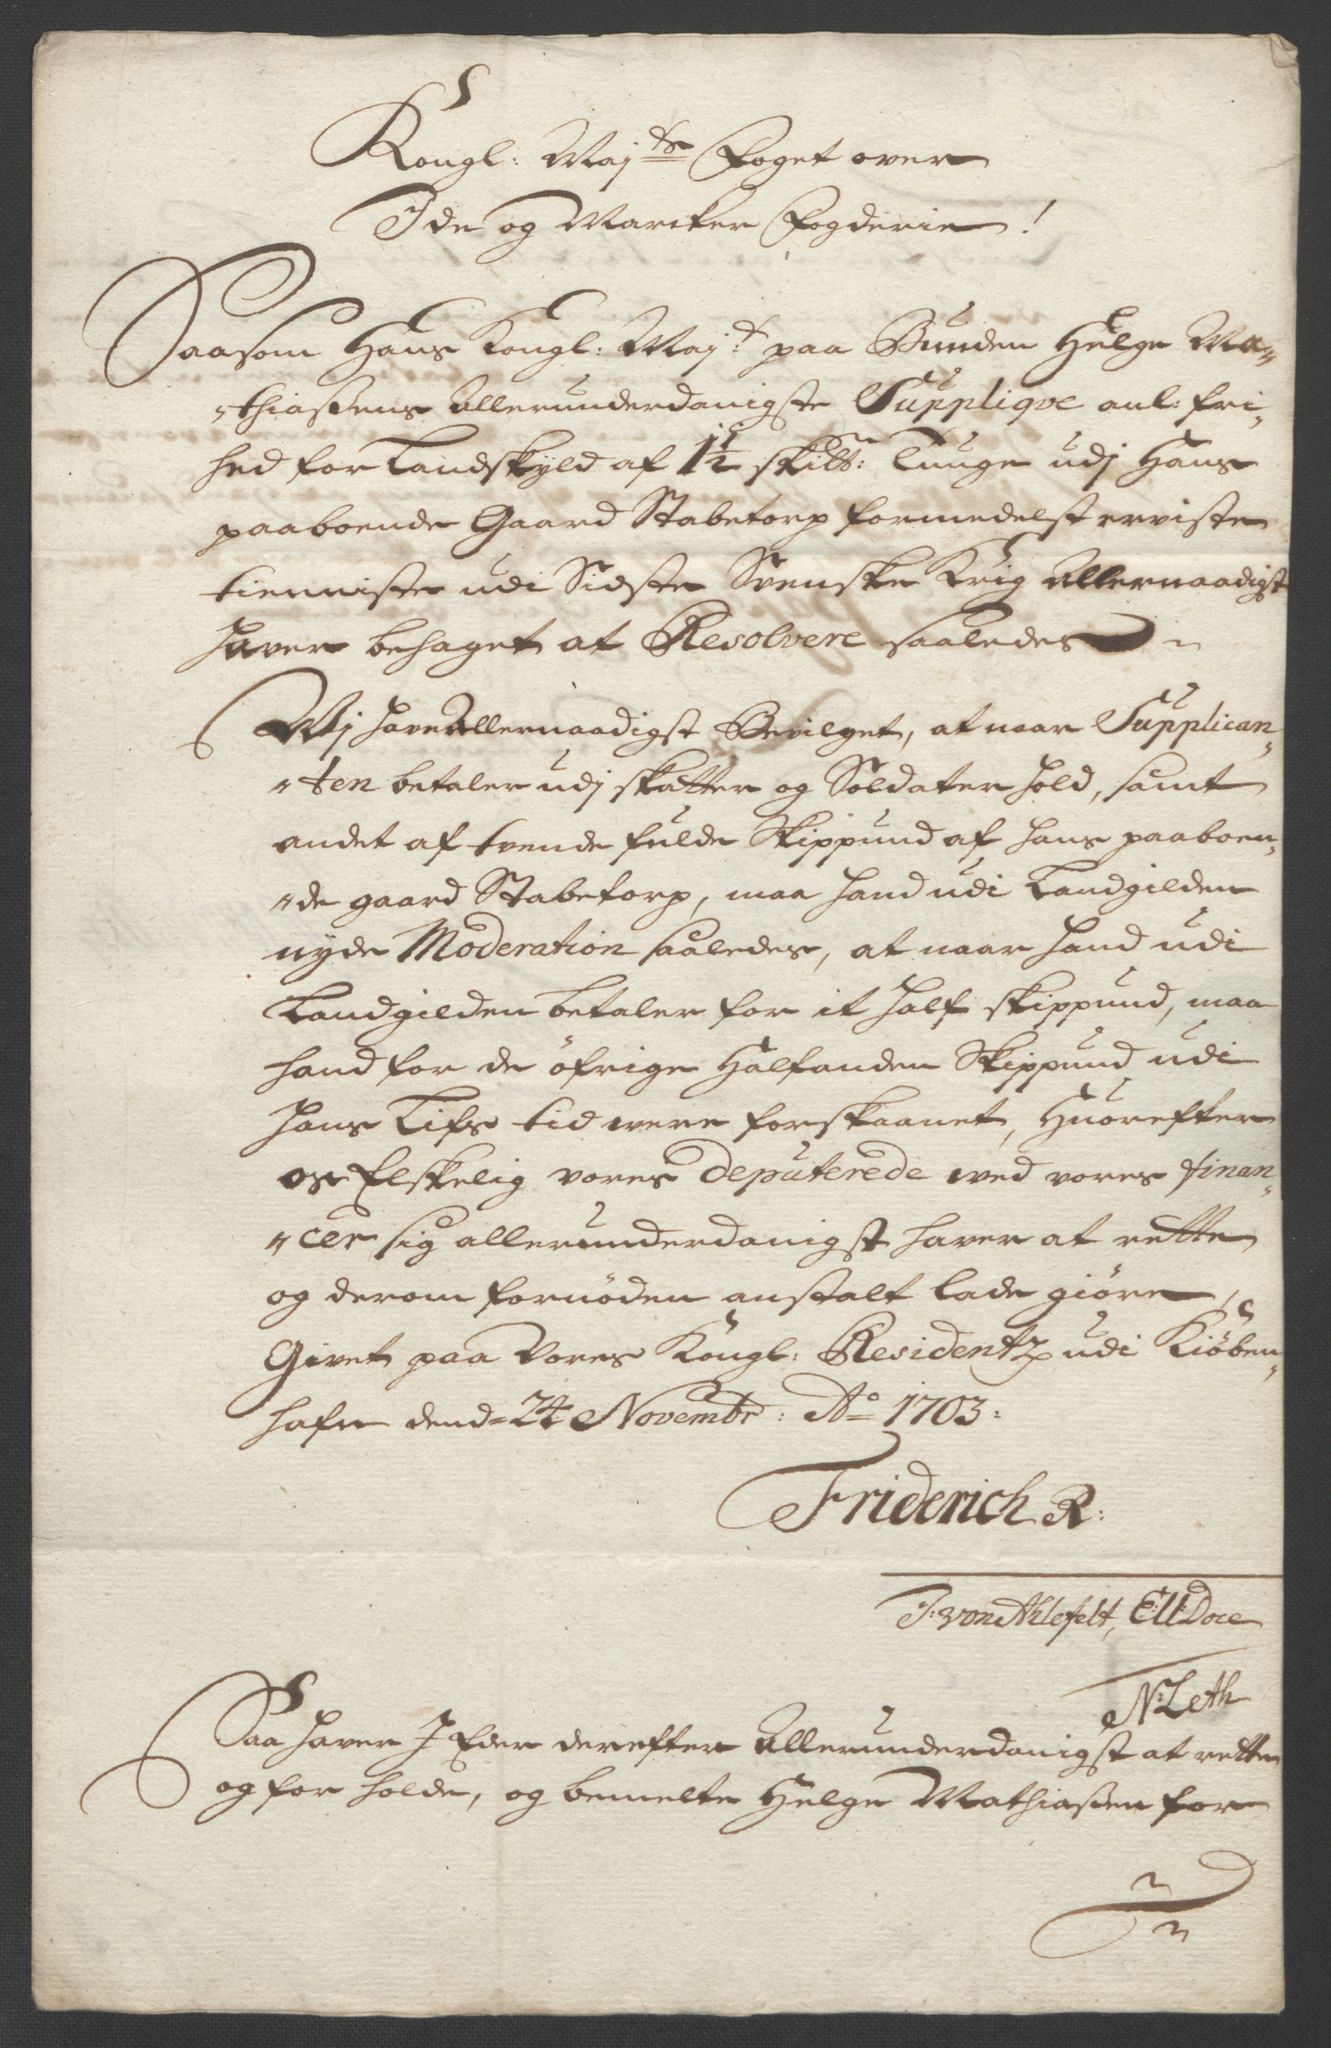 Kongl: Maj:ts Foget over
Ide og Marcker Fogderie!
Saasom Hans Kongl: Maj:t paa Bunden Helge Ma„
„thiaßens Allerunderdanigste Supplique anl: fri„
hed for Landskyld af 1½ skibt: Tunge udj Hans
paaboende Gaard Stabetorp formedelst erviste
tienniste udi Sidste Svenske Krig Allernaadigst
haver behaget at Resolvere saaledes
Wj have Allernaadigst Bevilget, at naar Supplican„
„ten betaler udj skatter og Soldater hold, samt
andet af tvende fulde Skippund af hans paaboen„
„de gaard Stabetorp, maa hand udi Landgilden
nyde Moderation saaledes, at naar hand udi
Landgilden betaler for it half skippund, maa
hand for de öfrige Halfanden Skippund udi
hans Lifs tid were forskaanet, Huorefter
os Elskelig vores Deputerede wed vores finan„
„cer sig allerunderdanigst haver at rette
og derom fornöden anstalt lade giöre,
Givet paa Vores Kongl: Residentz udi Kiöben„
hafn dend 24 Novembr: A:o 1703:
Friderich R:
J: von Ahlefelt,
N: Leth
Saa haver J Eder derefter Allerunderdanigst at rette
og for holde, og bemelte Helge Mathiaßen for